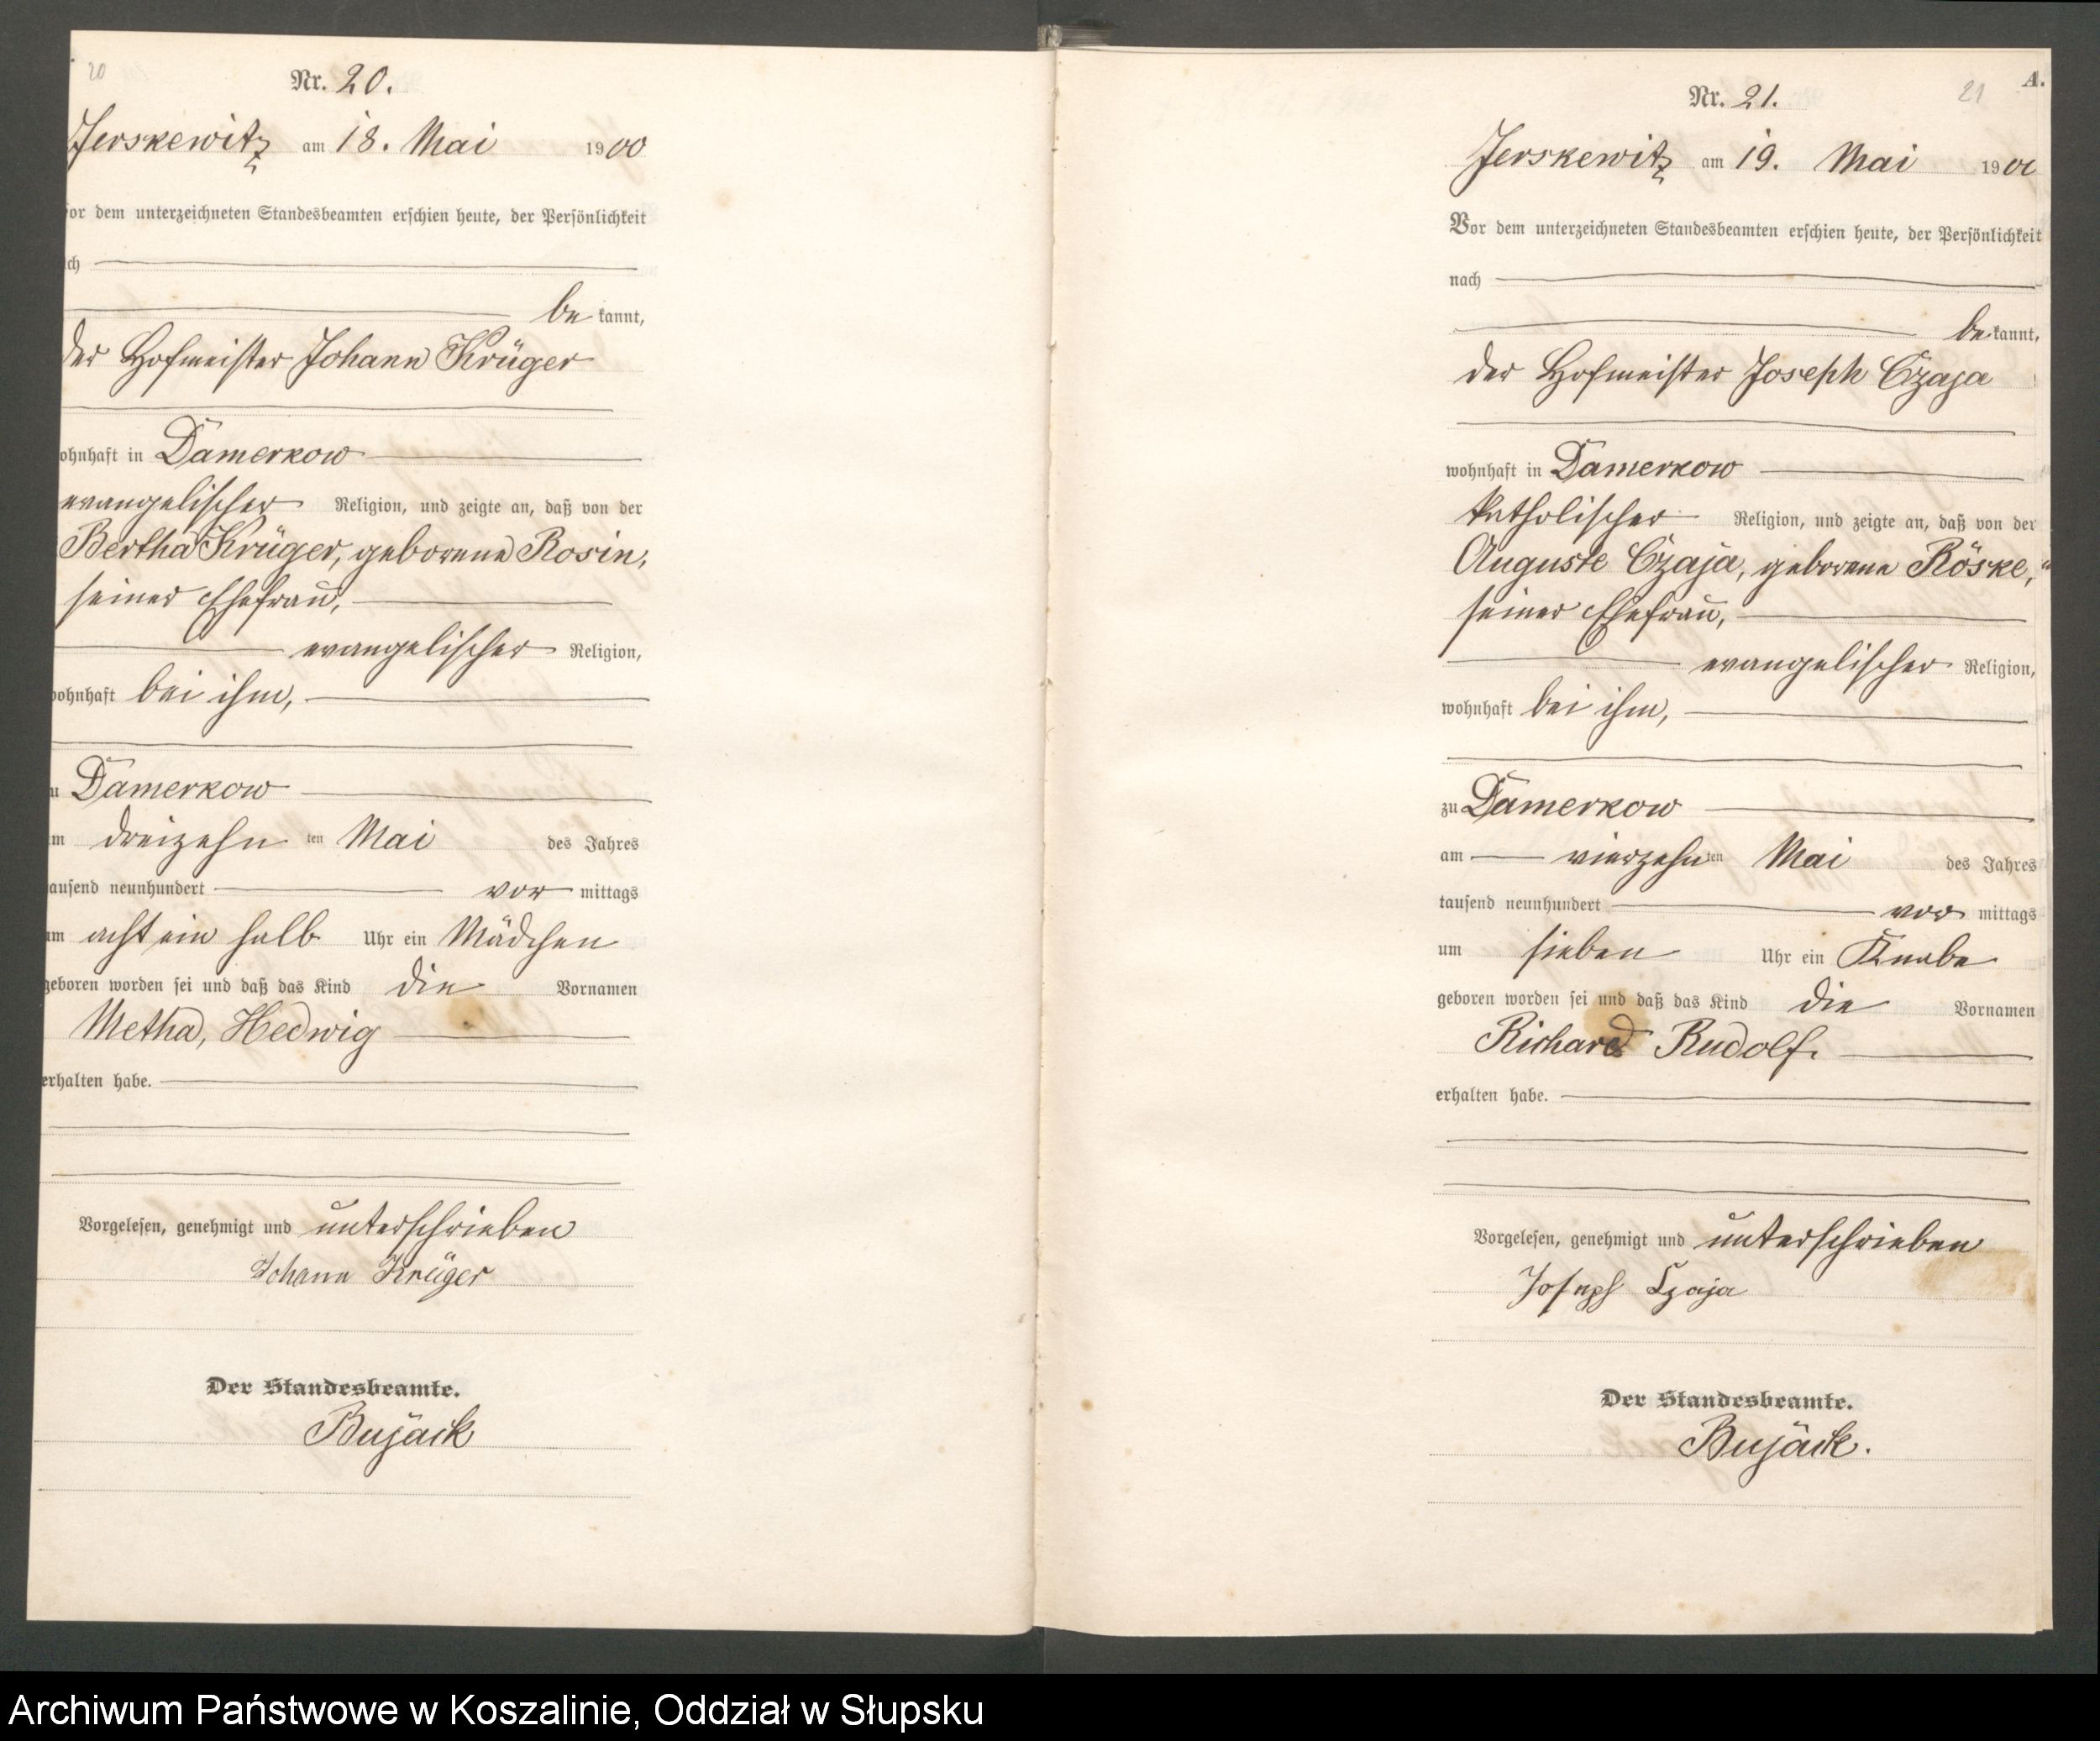 20
Nr. 20.
Jerskewitz am 18. Mai 1900
or dem unterzeichneten Standesbeamten erschien heute, der Persönlichkeit
ch
be kannt,
der Hofmeister Johann Krüger
ohnhaft in Damerkow
evangelischer Religion, und zeigte an, daß von der
Bertha Krüger, geborene Rosin,
seiner Ehefrau,
evangelischer Religion,
wohnhaft bei ihm,
u Damerkow
m dreizehn ten Mai des Jahres
ausend neunhundert vor mittags
um acht ein halb Uhr ein Mädchen
geboren worden sei und daß das Kind die Vornamen
Metha, Hedwig
erhalten habe.
Vorgelesen, genehmigt und unterschrieben
Johann Krüger
Der Standesbeamte.
Bujäck
A.
21
Nr. 21.
Jerskewitz am 19. Mai 1900
Vor dem unterzeichneten Standesbeamten erschien heute, der Persönlichkeit
nach
be kannt,
der Hofmeister Joseph Czaja
wohnhaft in Damerkow
katholischer Religion, und zeigte an, daß von der
Auguste Czaja, geborene Röske,
seiner Ehefrau,
evangelischer Religion,
wohnhaft bei ihm,
zu Damerkow
am vierzehn ten Mai des Jahres
tausend neunhundert vor mittags
um sieben Uhr ein Knabe
geboren worden sei und daß das Kind die Vornamen
Richard Rudolf.
erhalten habe.
Vorgelesen, genehmigt und unterschrieben
Joseph Czaja
Der Standesbeamte.
Bujäck.
Archiwum Państwowe w Koszalinie, Oddział w Słupsku